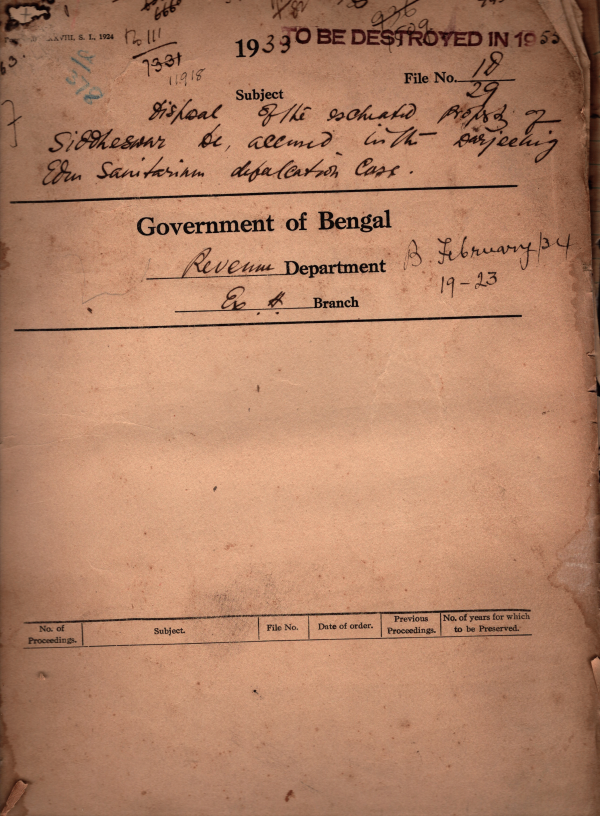 S. I., 1924
B III
7331
11918
1933 TO BE DESTROYED IN 1955
File No. 18
29
Subject
Disposal of the escheated property of
Siddheswar De, accused in the Darjeeling
Eden Sanitarium defalcation Case.
Government of Bengal
Revenue Department
B. February/34
19-23
Branch
No. of Proceedings. Subject. File No. Date of order. Previous Proceedings. No. of years for which to be Preserved.